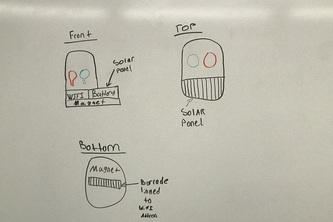 Front
Solar
panel
WIFI Battery
Magnet
Top
SOLAR
PANEL
Bottom
Magnet
Barcode
linked
to
WIFI